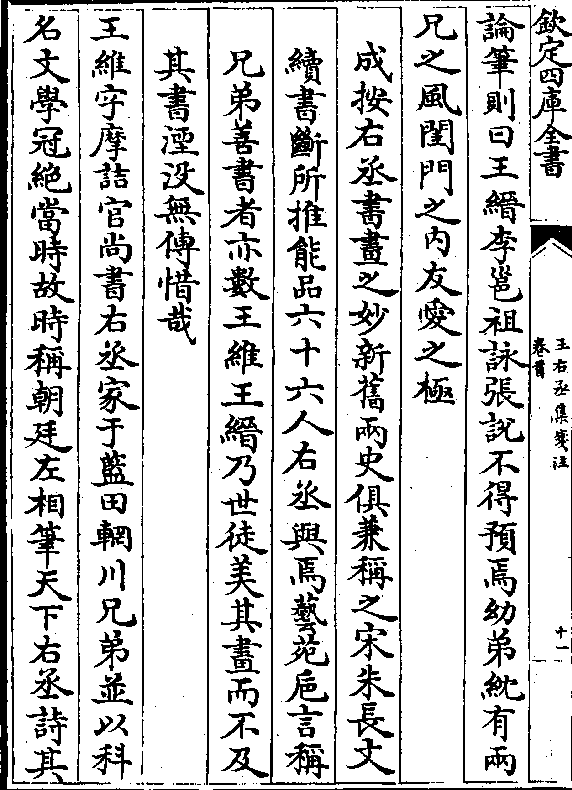 欽定四庫全書
王右丞集箋注
卷首
十一
論筆則曰王縉李邕祖詠張說不得預焉幼弟紞有兩
兄之風閨門之内友愛之極
成按右丞書畫之妙新舊兩史俱兼稱之宋朱長文
續書斷所推能品六十六人右丞與焉藝苑巵言稱
兄弟善書者亦數王維王縉乃世徒美其畫而不及
其書湮没無傳惜哉
王維字摩詰官尚書右丞家于藍田輞川兄弟並以科
名文學冠絶當時故時稱朝廷左相筆天下右丞詩其